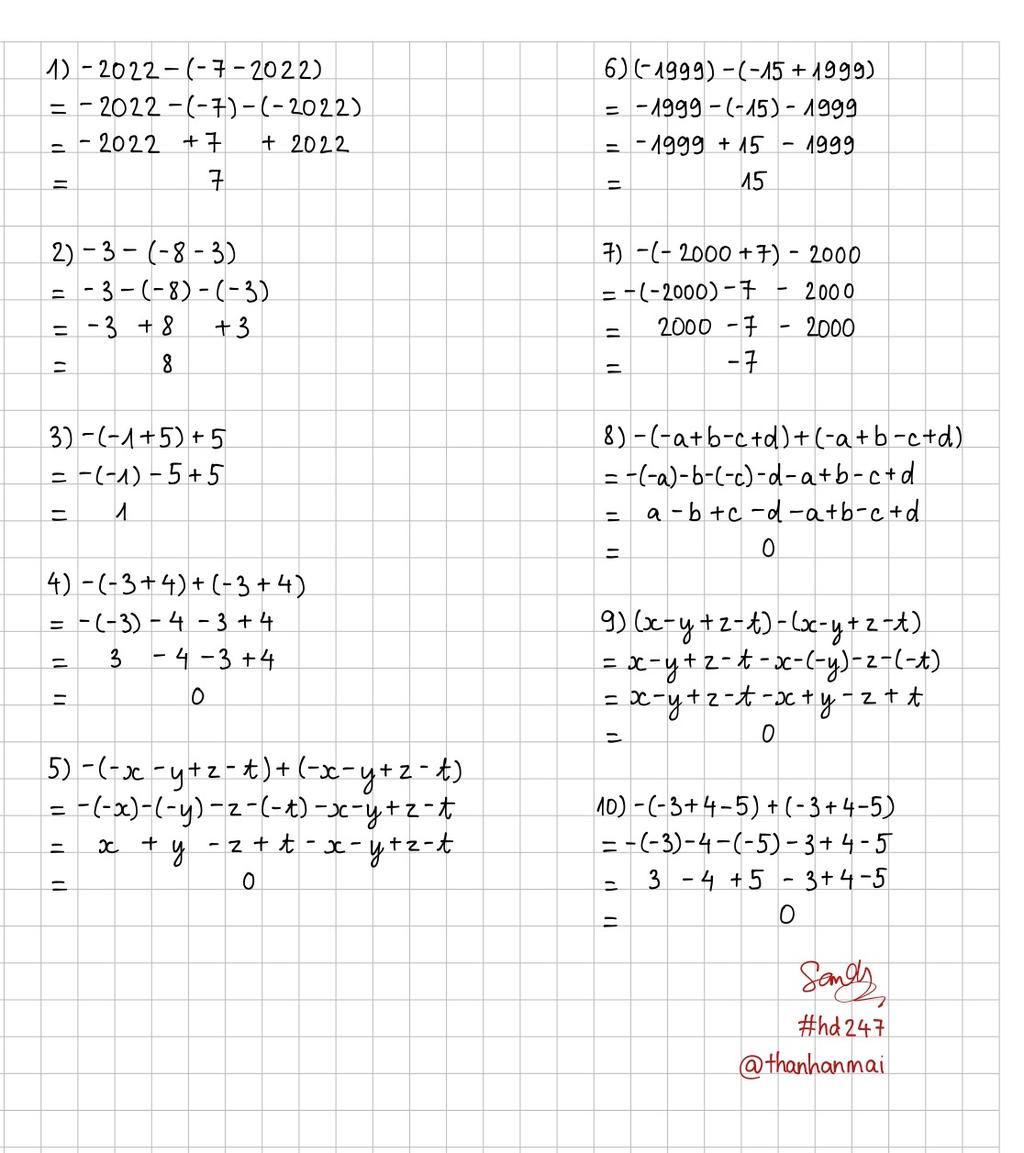 1) -2022-(-7-2022)
= -2022-(-7)-(-2022)
= -2022 +7 + 2022
= 7
2) -3-(-8-3)
= -3-(-8)-(-3)
= -3 +8 +3
= 8
3) -(-1+5)+5
= -(-1)-5+5
= 1
4) -(-3+4)+(-3+4)
= -(-3)-4-3+4
= 3 -4-3+4
= 0
5) -(-x-y+z-t)+(-x-y+z-t)
= -(-x)-(-y)-z-(-t)-x-y+z-t
= x + y -z+t-x-y+z-t
= 0
6) (-1999)-(-15+1999)
= -1999-(-15)-1999
= -1999 +15 - 1999
= 15
7) -(-2000+7)-2000
= -(-2000)-7 - 2000
= 2000 -7 - 2000
= -7
8) -(-a+b-c+d)+(-a+b-c+d)
= -(-a)-b-(-c)-d-a+b-c+d
= a-b+c-d-a+b-c+d
= 0
9) (x-y+z-t)-(x-y+z-t)
= x-y+z-t-x-(-y)-z-(-t)
= x-y+z-t-x+y-z+t
= 0
10) -(-3+4-5)+(-3+4-5)
= -(-3)-4-(-5)-3+4-5
= 3 -4 +5 -3+4-5
= 0
Sandy
#hd247
@thanhanmai